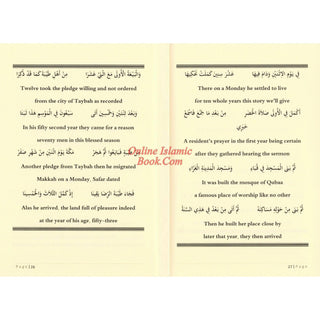 وَالْبَيْعَةُ الْأُولَى مَعَ اثْنَيْ عَشَرَا مِنْ أَهْلِ طَيْبَةَ كَمَا قَدْ ذُكِرَا
Twelve took the pledge willing and not ordered
from the city of Taybah as recorded
وَبَعْدَ ثِنْتَيْنِ وَخَمْسِينَ أَتَى سَبْعُونَ فِي الْمَوْسِمِ هَذَا ثَبَتَا
In his fifty second year they came for a reason
seventy men in this blessed season
مِنْ طَيْبَةٍ فَبَايَعُوا ثُمَّ هَجَرْ مَكَّةَ يَوْمَ اثْنَيْنِ مِنْ شَهْرِ صَفَرْ
Another pledge from Taybah then he migrated
Makkah on a Monday, Safar dated
فَجَاءَ طَيْبَةَ الرِّضَا يَقِينَا إِذْ كَمَّلَ الثَّلَاثَ وَالْخَمْسِينَا
Also he arrived, the land full of pleasure indeed
at the year of his age, fifty-three
Page | 26
فِي يَوْمِ الِاثْنَيْنِ وَدَامَ فِيهَا عَشْرَ سِنِينَ كَمُلَتْ نَحْكِيهَا
There on a Monday he settled to live
for ten whole years this story we'll give
أَكْمَلَ فِي الْأُولَى صَلَاةَ الْحَضَرِ مِنْ بَعْدِ مَا جَمَّعَ فَاسْمَعْ
خَبَرِي
A resident's prayer in the first year being certain
after they gathered hearing the sermon
ثُمَّ بَنَى الْمَسْجِدَ فِي قُبَاءِ وَمَسْجِدَ الْمَدِينَةِ الْغَرَّاءِ
It was built the mosque of Qubaa
a famous place of worship like no other
ثُمَّ بَنَى مِنْ حَوْلِهِ مَسَاكِنَهْ ثُمَّ أَتَى مِنْ بَعْدُ فِي هَذِي السَّنَةْ
Then he built her place close by
later that year, they then arrived
27 | Page
Online Islamic
Book.Com